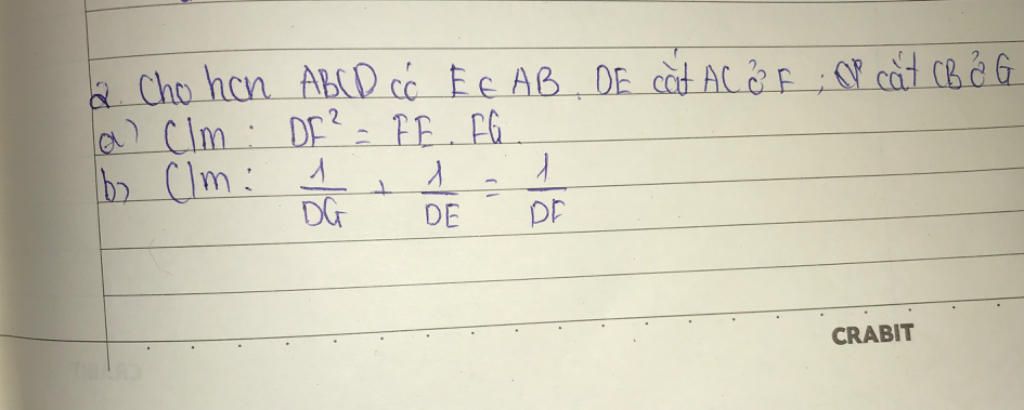 2. Cho hcn ABCD có E ∈ AB. DE cắt AC ở F ; cắt CB ở G
a) C/m : DF² = FE . FG.
b) C/m : 1/DG + 1/DE = 1/DF
CRABIT